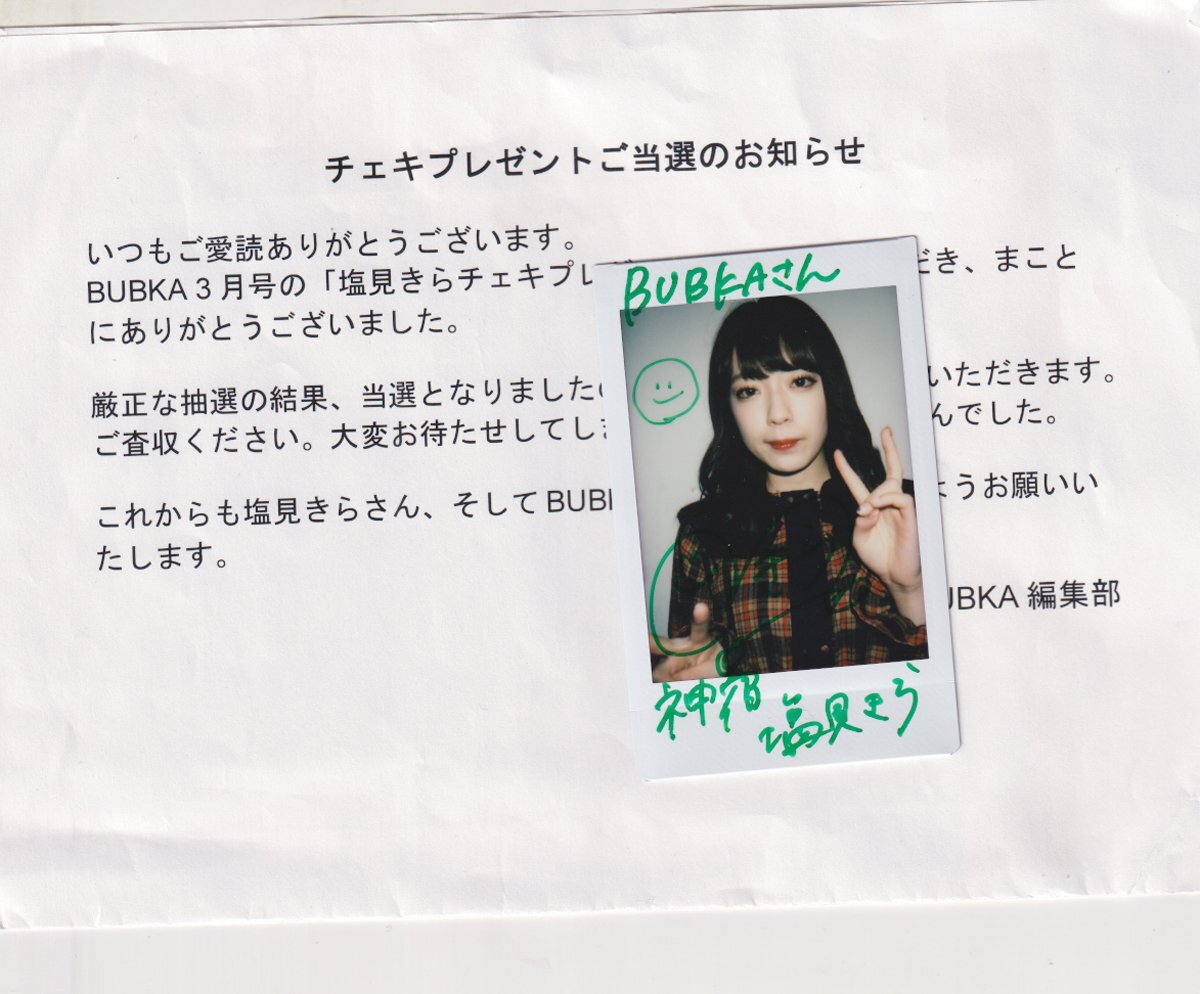 チェキプレゼントご当選のお知らせ
いつもご愛読ありがとうございます。
BUBKA 3 月号の「塩見きらチェキプレ だき、まこと
にありがとうございました。
厳正な抽選の結果、当選となりました いただきます。
ご査収ください。大変お待たせしてし んでした。
これからも塩見きらさん、そして BUB ようお願いい
たします。
BUBKA 編集部
BUBKAさん
神宿
塩見きら